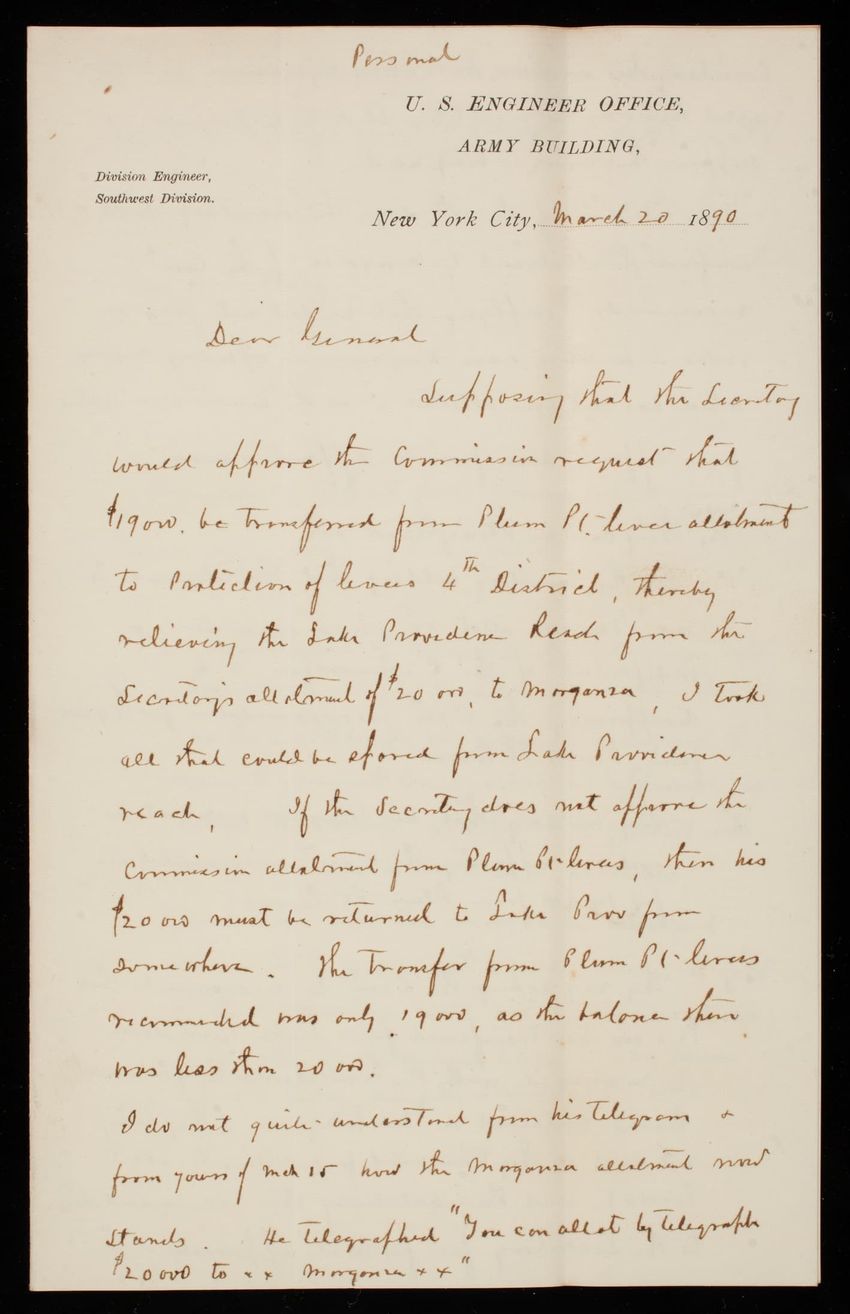 Personal
U. S. ENGINEER OFFICE,
ARMY BUILDING,
Division Engineer,
Southwest Division.
New York City, March 20 1890
Dear General
Supposing that the Secretary
would approve the Commission request that
$19000. be transferred from Plum Pt. levee allotment
to Protection of levees 4th District, thereby
relieving the Lake Providence Reach from the
Secretary's allotment of $20 000, to Morganza, I took
all that could be spared from Lake Providence
reach, If the Secretary does not approve the
Commission allotment from Plum Pt levees, then his
$20 000 must be returned to Lake Prov from
somewhere. The transfer from Plum Pt. levees
recommended was only 19000, as the balance there
was less than 20 000.
I do not quite understand from his telegram &
from yours of Mch 15 how the Morganza allotment now
stands. He telegraphed "You can allot by telegraph
$20000 to x x Morganza x x"